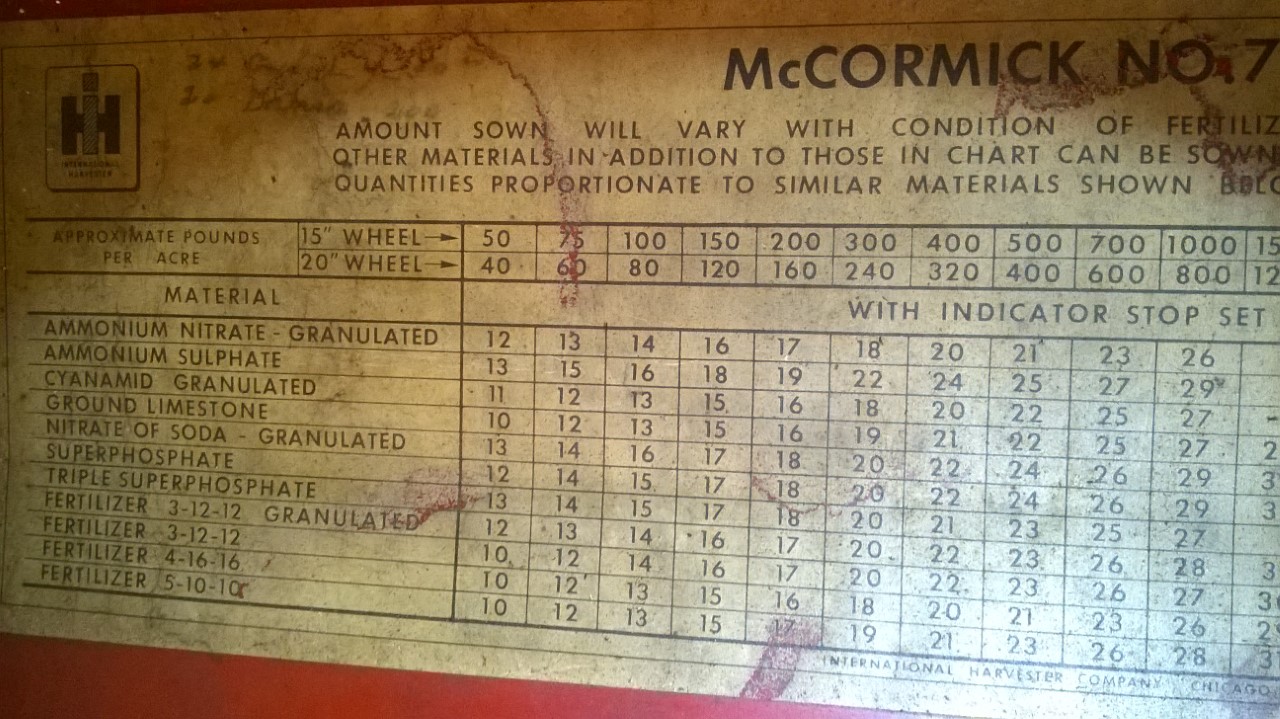 IH
INTERNATIONAL
HARVESTER
McCORMICK NO. 7
AMOUNT SOWN WILL VARY WITH CONDITION OF FERTILIZ
OTHER MATERIALS IN ADDITION TO THOSE IN CHART CAN BE SOWN
QUANTITIES PROPORTIONATE TO SIMILAR MATERIALS SHOWN BELO
APPROXIMATE POUNDS PER ACRE
15" WHEEL→ 50 75 100 150 200 300 400 500 700 1000 15
20" WHEEL→ 40 60 80 120 160 240 320 400 600 800 12
MATERIAL WITH INDICATOR STOP SET
AMMONIUM NITRATE - GRANULATED 12 13 14 16 17 18 20 21 23 26
AMMONIUM SULPHATE 13 15 16 18 19 22 24 25 27 29
CYANAMID GRANULATED 11 12 13 15 16 18 20 22 25 27 -
GROUND LIMESTONE 10 12 13 15 16 19 21 22 25 27 2
NITRATE OF SODA - GRANULATED 13 14 16 17 18 20 22 24 26 29 3
SUPERPHOSPHATE 12 14 15 17 18 20 22 24 26 29 3
TRIPLE SUPERPHOSPHATE 13 14 15 17 18 20 21 23 25 27
FERTILIZER 3-12-12 GRANULATED 12 13 14 16 17 20 22 23 26 28 3
FERTILIZER 3-12-12 10 12 14 16 17 20 22 23 26 27 3
FERTILIZER 4-16-16 10 12 13 15 16 18 20 21 23 26 2
FERTILIZER 5-10-10 10 12 13 15 17 19 21 23 26 28 3
INTERNATIONAL HARVESTER COMPANY CHICAGO